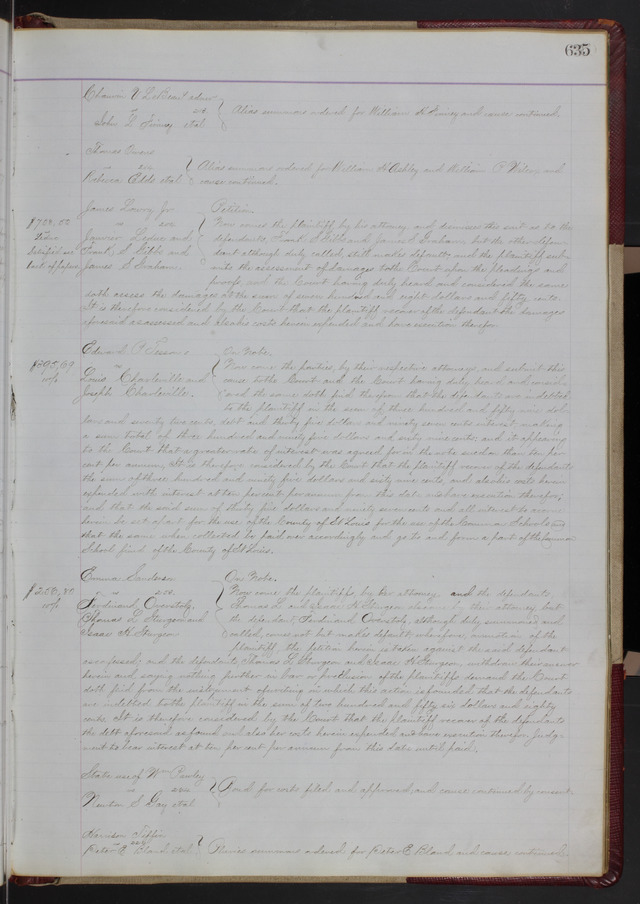 635
Chauvin V. LeBeau admr
vs
John D. Finney et al
Alias summons ordered for William K. Finney and cause continued.
Thomas Owens
vs
Rebecca Adds et al
Alias summons ordered for William H Ashley and William P Wilson and
cause continued.
James Lowry Jr
vs
and
Frank S. Gibbs and
James S. Graham.
$708.50
Petition
Now comes the plaintiff by his attorney, and dismisses this suit as to the
defendants, Frank S Gibbs and James S Graham but the other defen-
dant although duly called, still makes default, and the plaintiff sub-
mits the assessment of damages to the Court upon the pleadings and
proofs, and the Court having duly heard and considered the same
doth assess the damages at the sum of seven hundred and eight dollars and fifty cents.
It is therefore considered by the Court that the plaintiff recover of the defendant the damages
aforesaid as assessed and also his costs herein expended and have execution therefor.
Edward P.
vs
Louis Charleville and
Joseph Charleville.
$395.69
10%
On Note.
Now come the parties, by their respective attorneys and submit this
cause to the Court and the Court having duly heard and consid-
ered the same doth find therefrom that the defendants are indebted
to the plaintiff in the sum of three hundred and fifty nine dol-
lars and seventy two cents, debt and thirty five dollars and ninety seven cents interest making
a sum total of three hundred and ninety five dollars and sixty nine cents, and it appearing
to the Court that a greater rate of interest was agreed for in the note sued on than ten per
cent per annum, It is therefore considered by the Court that the plaintiff recover of the defendants
the sum of three hundred and ninety five dollars and sixty nine cents, and also his costs herein
expended with interest at ten percent per annum from this date and have execution therefor;
and that the said sum of thirty five dollars and ninety seven cents and all interest to accrue
herein be set apart for the use of the County of St Louis for the use of the Common Schools and
that the same when collected be paid over accordingly and go to and form a part of the Common
School fund of the County of St Louis.
Emma Sanderson
vs
Ferdinand Overstolz,
Thomas L. Sturgeon and
Isaac H. Sturgeon
$256.80
10%
On Note.
Now come the plaintiffs, by her attorney and the defendants,
Thomas L. and Isaac H. Sturgeon by their attorney but
the defendant, Ferdinand Overstolz, although duly summoned and
called, comes not but makes default; wherefore, the
plaintiff, the petition herein is taken against the said defendant
as confessed; and the defendants, Thomas L. Sturgeon and Isaac H. Sturgeon, withdraw their answer
herein and saying nothing further in bar or preclusion of the plaintiffs demand the Court
doth find from the instrument of writing on which this action is founded that the defendants
are indebted to the plaintiff in the sum of two hundred and fifty six dollars and eighty
cents. It is therefore considered by the Court that the plaintiff recover of the defendants
the debt aforesaid as found and also her costs herein expended and have execution therefor. Judg-
ment to bear interest at ten per cent per annum from this date until paid.
State use of Wm Pawley
vs
Newton S. Day et al
Bond for costs filed and approved, and cause continued by consent.
Harrison Tiffin
vs
Peter E. Bland et al
Pluries summons ordered for Peter E. Bland and cause continued.